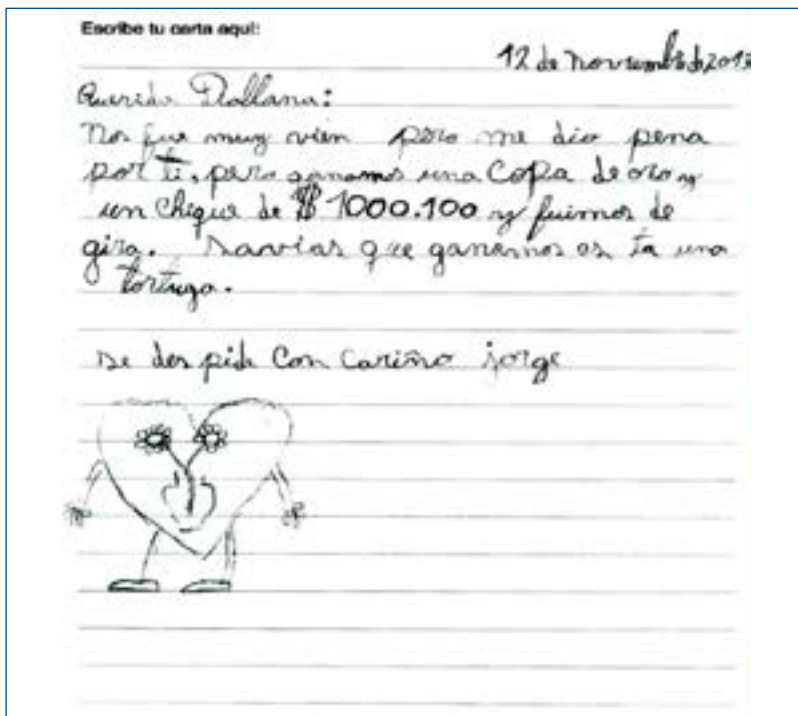 Escribe tu carta aquí:
12 de noviembre de 201
Querida Dallana:
Nos fue muy vien pero me dio pena
por ti. pero ganamos una Copa de oro y
un chique de $ 1000.100 y fuimos de
gira. savias que ganamos as ta una
tortuga.
se des pide Con Cariño jorge